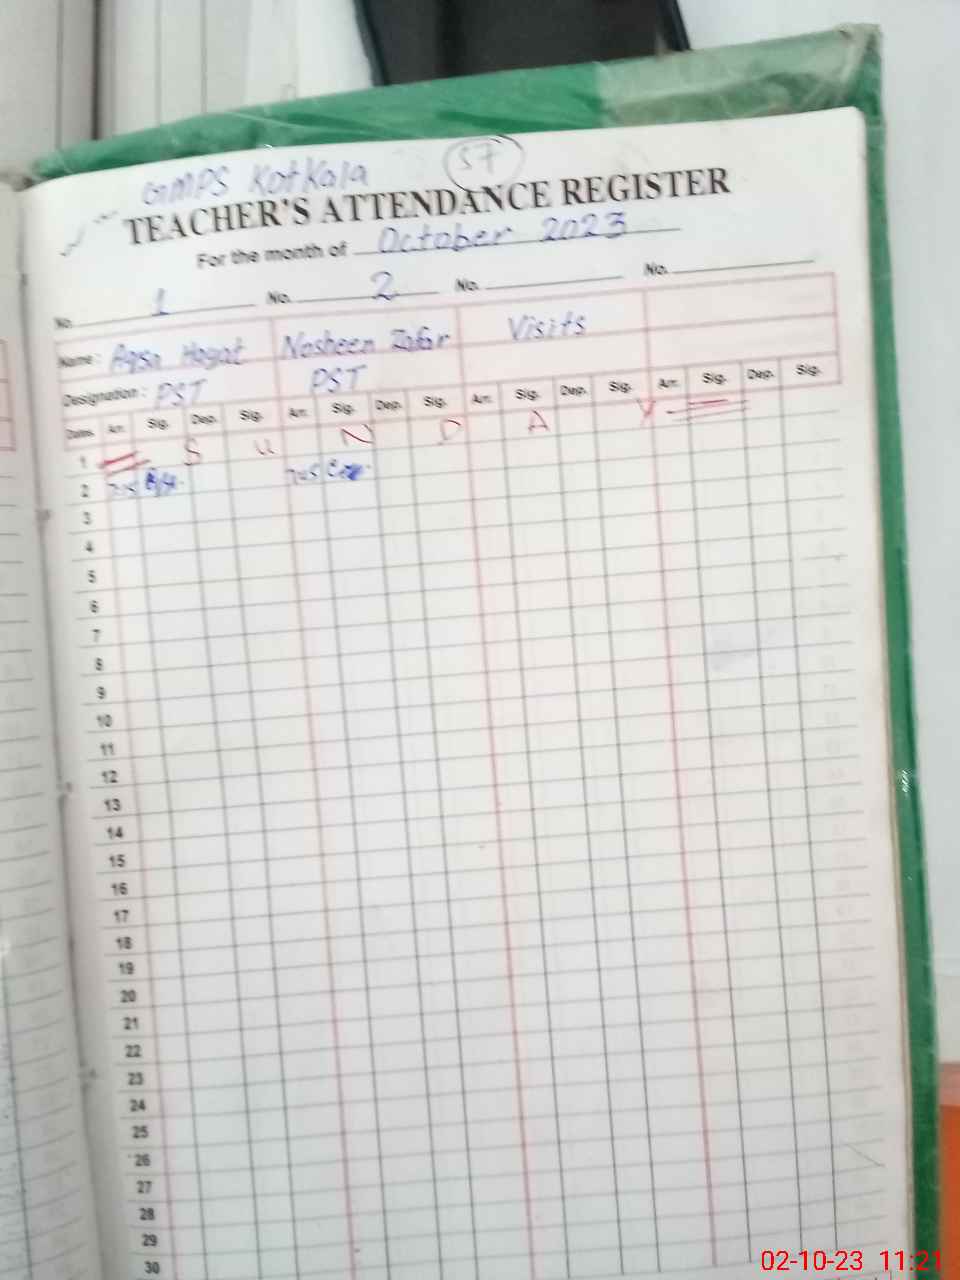 57
GMPS KotKala
TEACHER'S ATTENDANCE REGISTER
For the month of October 2023
No. 1 No. 2 No. No.
Name: Aqsa Hayat Nosheen Zafar Visits
Designation: PST PST
Dates Arr. Sig. Dep. Sig. Arr. Sig. Dep. Sig. Arr. Sig. Dep. Sig. Arr. Sig. Dep. Sig.
1 S U N D A Y
2 7:45 7:45
3
4
5
6
7
8
9
10
11
12
13
14
15
16
17
18
19
20
21
22
23
24
25
26
27
28
29
30
02-10-23 11:21